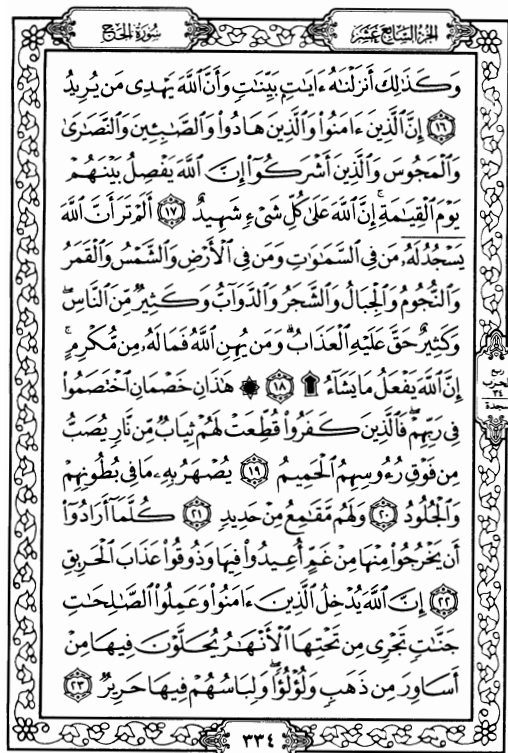 سُورَةُ الحَجّ
الجُزْءُ السَّابِعَ عَشَرَ
وَكَذَٰلِكَ أَنزَلْنَٰهُ ءَايَٰتٍۭ بَيِّنَٰتٍ وَأَنَّ ٱللَّهَ يَهْدِى مَن يُرِيدُ
١٦ إِنَّ ٱلَّذِينَ ءَامَنُوا۟ وَٱلَّذِينَ هَادُوا۟ وَٱلصَّٰبِـِٔينَ وَٱلنَّصَٰرَىٰ
وَٱلْمَجُوسَ وَٱلَّذِينَ أَشْرَكُوٓا۟ إِنَّ ٱللَّهَ يَفْصِلُ بَيْنَهُمْ
يَوْمَ ٱلْقِيَٰمَةِ ۚ إِنَّ ٱللَّهَ عَلَىٰ كُلِّ شَىْءٍ شَهِيدٌ ١٧ أَلَمْ تَرَ أَنَّ ٱللَّهَ
يَسْجُدُ لَهُۥ مَن فِى ٱلسَّمَٰوَٰتِ وَمَن فِى ٱلْأَرْضِ وَٱلشَّمْسُ وَٱلْقَمَرُ
وَٱلنُّجُومُ وَٱلْجِبَالُ وَٱلشَّجَرُ وَٱلدَّوَآبُّ وَكَثِيرٌ مِّنَ ٱلنَّاسِ ۖ
وَكَثِيرٌ حَقَّ عَلَيْهِ ٱلْعَذَابُ ۗ وَمَن يُهِنِ ٱللَّهُ فَمَا لَهُۥ مِن مُّكْرِمٍ ۚ
إِنَّ ٱللَّهَ يَفْعَلُ مَا يَشَآءُ ۩ ١٨ ۞ هَٰذَانِ خَصْمَانِ ٱخْتَصَمُوا۟
فِى رَبِّهِمْ ۖ فَٱلَّذِينَ كَفَرُوا۟ قُطِّعَتْ لَهُمْ ثِيَابٌ مِّن نَّارٍ يُصَبُّ
مِن فَوْقِ رُءُوسِهِمُ ٱلْحَمِيمُ ١٩ يُصْهَرُ بِهِۦ مَا فِى بُطُونِهِمْ
وَٱلْجُلُودُ ٢٠ وَلَهُم مَّقَٰمِعُ مِنْ حَدِيدٍ ٢١ كُلَّمَآ أَرَادُوٓا۟
أَن يَخْرُجُوا۟ مِنْهَا مِنْ غَمٍّ أُعِيدُوا۟ فِيهَا وَذُوقُوا۟ عَذَابَ ٱلْحَرِيقِ
٢٢ إِنَّ ٱللَّهَ يُدْخِلُ ٱلَّذِينَ ءَامَنُوا۟ وَعَمِلُوا۟ ٱلصَّٰلِحَٰتِ
جَنَّٰتٍ تَجْرِى مِن تَحْتِهَا ٱلْأَنْهَٰرُ يُحَلَّوْنَ فِيهَا مِنْ
أَسَاوِرَ مِن ذَهَبٍ وَلُؤْلُؤًا ۖ وَلِبَاسُهُمْ فِيهَا حَرِيرٌ ٢٣
ربع
الحزب
٣٤
سجدة
٣٣٤